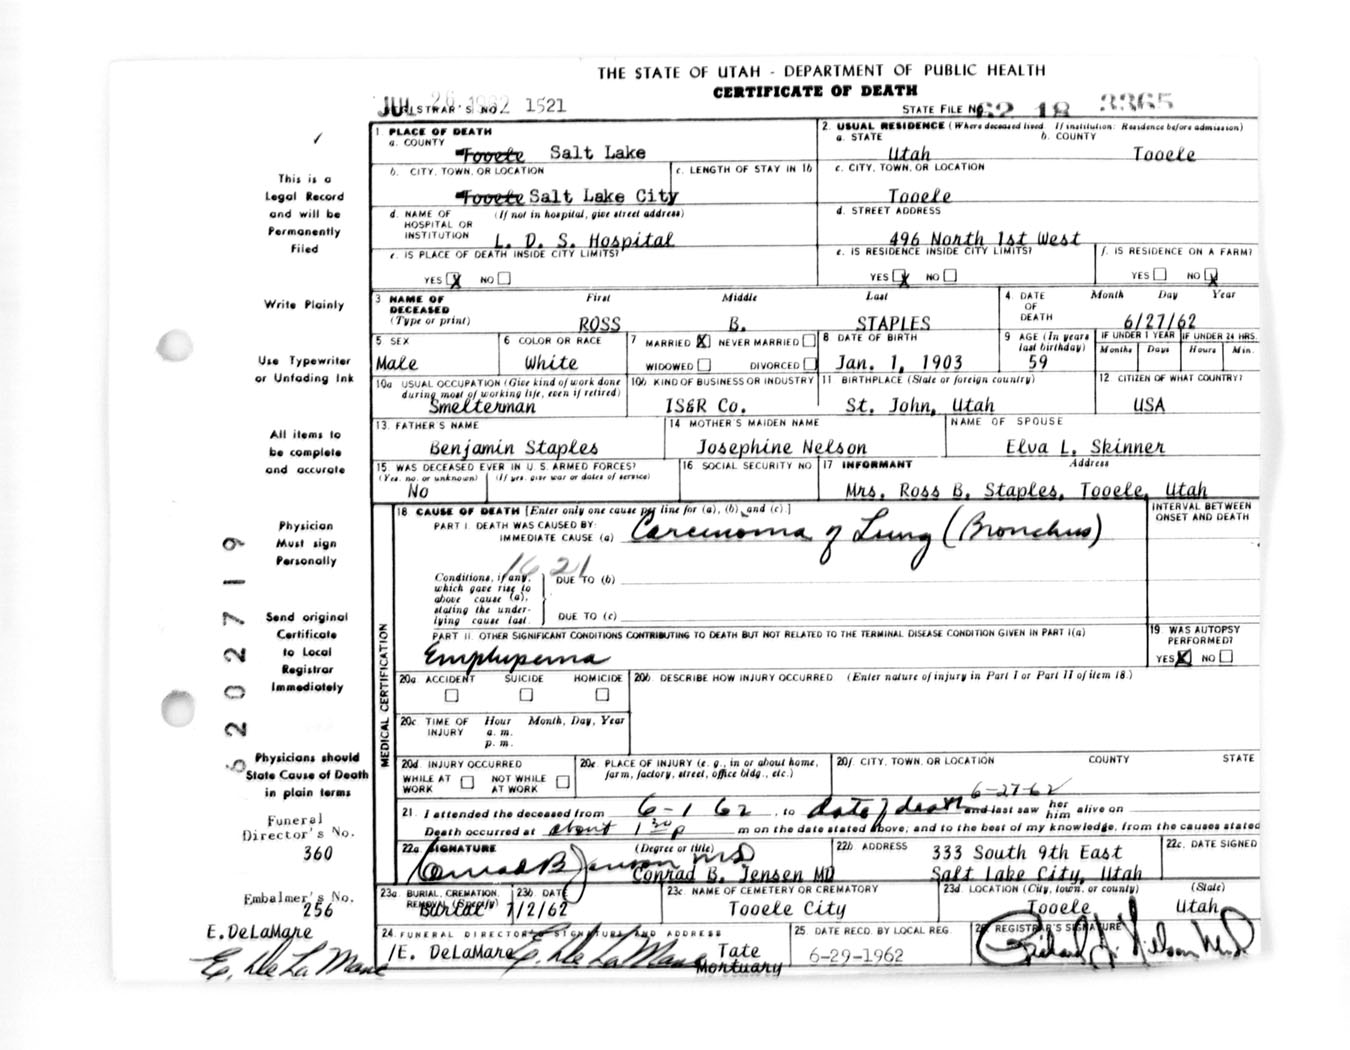 THE STATE OF UTAH - DEPARTMENT OF PUBLIC HEALTH
CERTIFICATE OF DEATH
JUL 26 1962 REGISTRAR'S NO. 1521 STATE FILE NO. 62 18 3365
1. PLACE OF DEATH
a. COUNTY Tooele Salt Lake
b. CITY, TOWN, OR LOCATION Tooele Salt Lake City
c. LENGTH OF STAY IN 1b
d. NAME OF HOSPITAL OR INSTITUTION (If not in hospital, give street address) L. D. S. Hospital
e. IS PLACE OF DEATH INSIDE CITY LIMITS?
YES X NO
2. USUAL RESIDENCE (Where deceased lived. If institution: Residence before admission)
a. STATE Utah b. COUNTY Tooele
c. CITY, TOWN, OR LOCATION Tooele
d. STREET ADDRESS 496 North 1st West
e. IS RESIDENCE INSIDE CITY LIMITS? YES X NO
f. IS RESIDENCE ON A FARM? YES NO X
3 NAME OF DECEASED (Type or print) First ROSS Middle B. Last STAPLES
4. DATE OF DEATH Month Day Year 6/27/62
5 SEX Male
6 COLOR OR RACE White
7 MARRIED X NEVER MARRIED WIDOWED DIVORCED
8 DATE OF BIRTH Jan. 1, 1903
9 AGE (In years last birthday) 59
IF UNDER 1 YEAR Months Days
IF UNDER 24 HRS. Hours Min.
10a USUAL OCCUPATION (Give kind of work done during most of working life, even if retired) Smelterman
10b KIND OF BUSINESS OR INDUSTRY IS&R Co.
11 BIRTHPLACE (State or foreign country) St. John, Utah
12 CITIZEN OF WHAT COUNTRY? USA
13. FATHER'S NAME Benjamin Staples
14 MOTHER'S MAIDEN NAME Josephine Nelson
NAME OF SPOUSE Elva L. Skinner
15 WAS DECEASED EVER IN U. S. ARMED FORCES? (Yes, no, or unknown) (If yes, give war or dates of service) No
16 SOCIAL SECURITY NO
17 INFORMANT Address Mrs. Ross B. Staples, Tooele, Utah
MEDICAL CERTIFICATION
18 CAUSE OF DEATH [Enter only one cause per line for (a), (b), and (c).]
PART I. DEATH WAS CAUSED BY:
IMMEDIATE CAUSE (a) Carcinoma of Lung (Bronchus)
INTERVAL BETWEEN ONSET AND DEATH
1621
Conditions, if any, which gave rise to above cause (a), stating the underlying cause last.
DUE TO (b)
DUE TO (c)
PART II. OTHER SIGNIFICANT CONDITIONS CONTRIBUTING TO DEATH BUT NOT RELATED TO THE TERMINAL DISEASE CONDITION GIVEN IN PART I(a)
Emphysema
19 WAS AUTOPSY PERFORMED? YES X NO
20a ACCIDENT SUICIDE HOMICIDE
20b. DESCRIBE HOW INJURY OCCURRED (Enter nature of injury in Part I or Part II of item 18.)
20c TIME OF INJURY Hour a. m. p. m. Month, Day, Year
20d. INJURY OCCURRED WHILE AT WORK NOT WHILE AT WORK
20e. PLACE OF INJURY (e. g., in or about home, farm, factory, street, office bldg., etc.)
20f. CITY, TOWN, OR LOCATION COUNTY STATE
21. I attended the deceased from 6-1 62, to date of death 6-27-62 and last saw her him alive on
Death occurred at about 1 30 p m on the date stated above; and to the best of my knowledge, from the causes stated
22a. SIGNATURE (Degree or title) Conrad B Jensen MD
Conrad B. Jensen MD
22b ADDRESS 333 South 9th East
Salt Lake City, Utah
22c. DATE SIGNED
23a. BURIAL, CREMATION, REMOVAL (Specify) Burial
23b DATE 7/2/62
23c NAME OF CEMETERY OR CREMATORY Tooele City
23d. LOCATION (City, town, or county) (State) Tooele Utah
24. FUNERAL DIRECTOR'S SIGNATURE AND ADDRESS
/E. DeLaMare E. De La Mare Tate Mortuary
25. DATE RECD. BY LOCAL REG. 6-29-1962
26. REGISTRAR'S SIGNATURE
✓
This is a
Legal Record
and will be
Permanently
Filed
Write Plainly
Use Typewriter
or Unfading Ink
All items to
be complete
and accurate
Physician
Must sign
Personally
Send original
Certificate
to Local
Registrar
Immediately
Physicians should
State Cause of Death
in plain terms
Funeral
Director's No.
360
Embalmer's No.
256
E. DeLaMare
E. De La Mare
202719